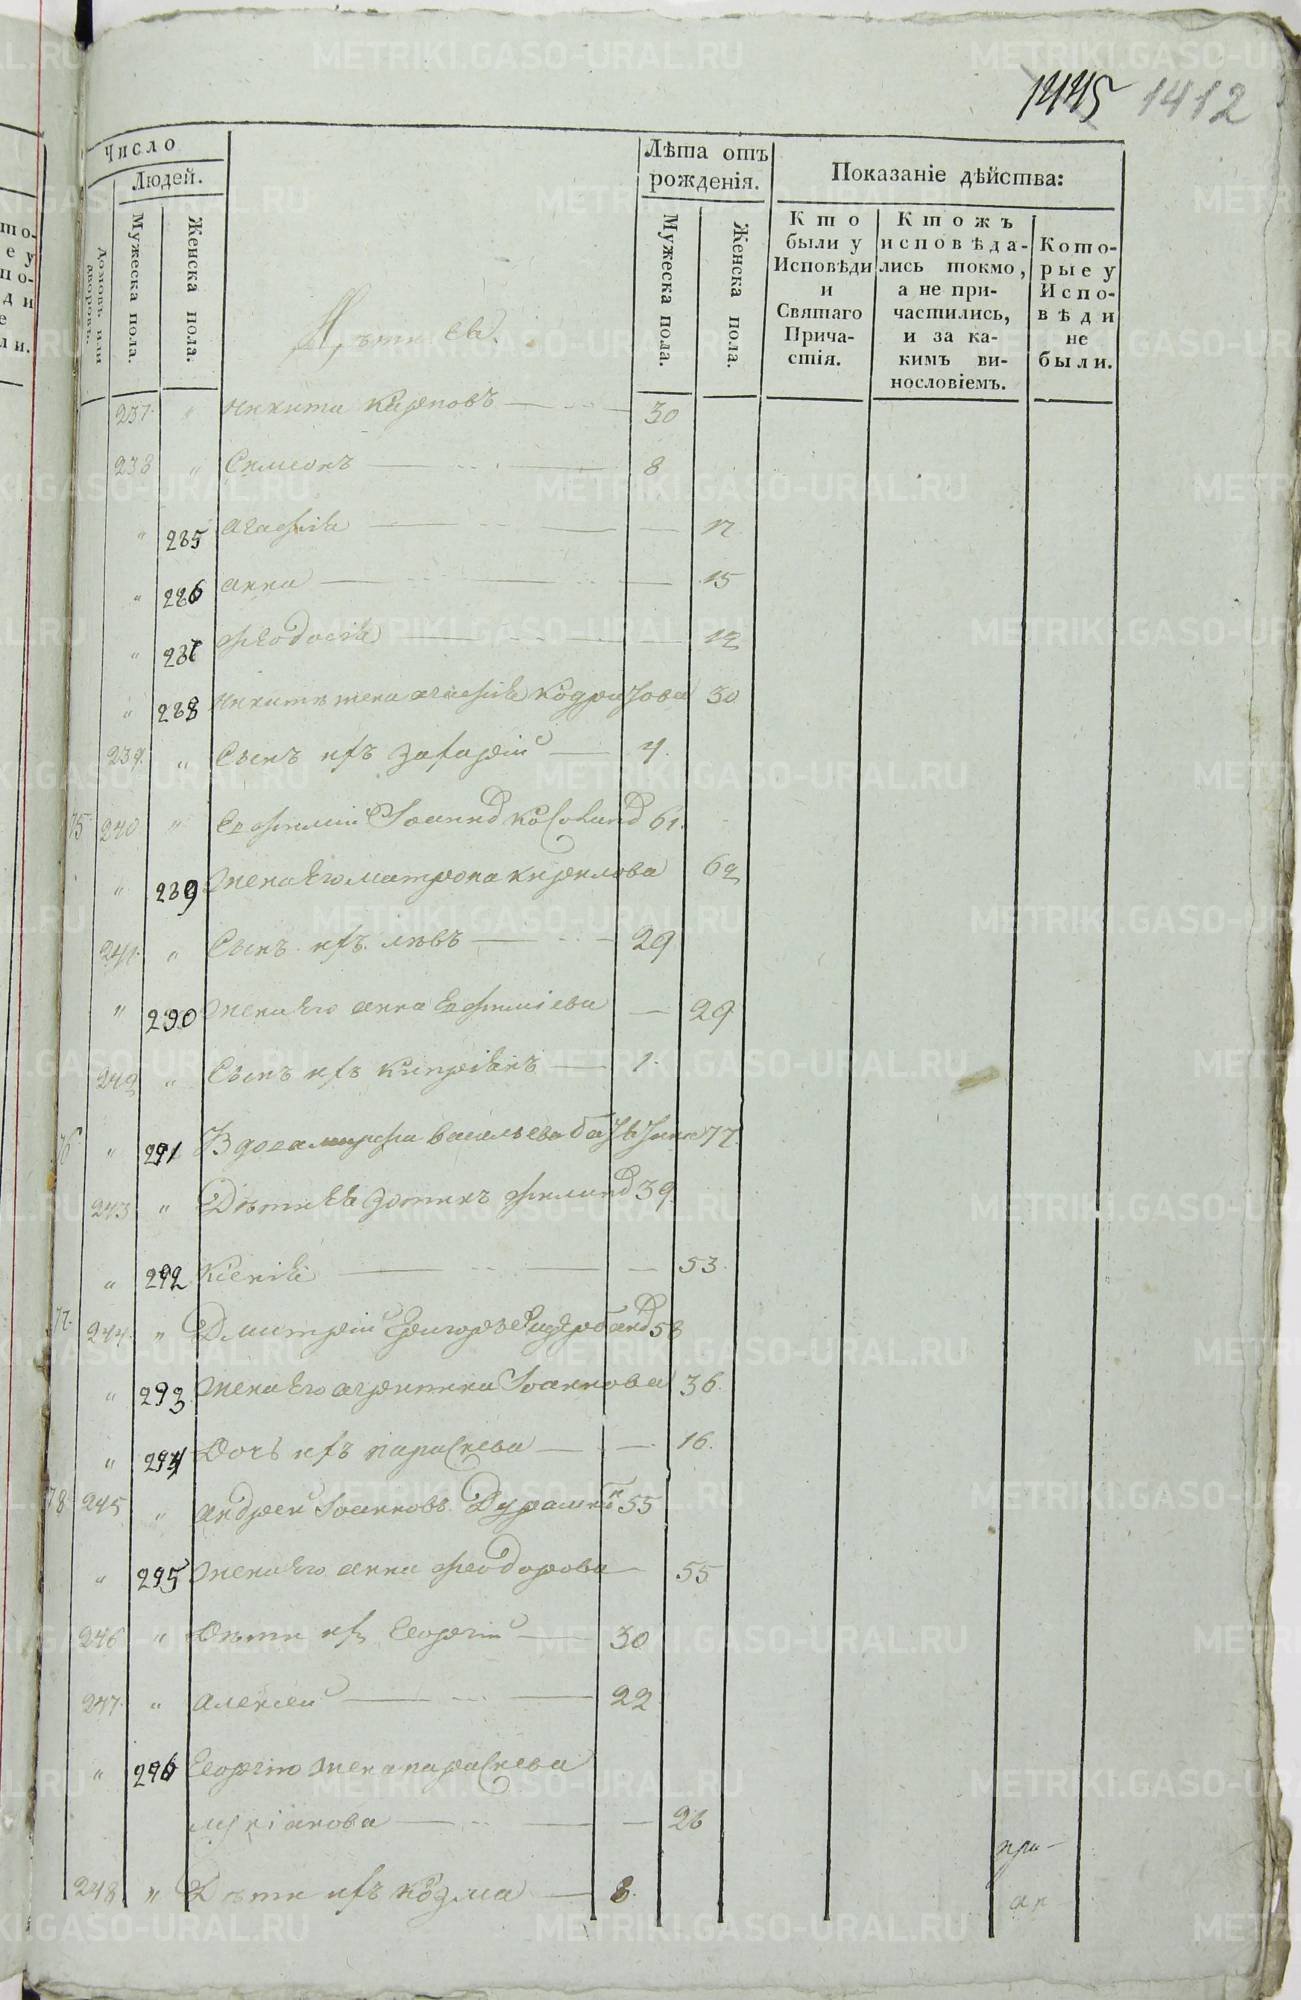 1445 1412
Число
Людей.
Домовъ или дворовъ.
Мужеска пола.
Женска пола.
Лѣта отъ рожденія.
Мужеска пола.
Женска пола.
Показаніе дѣйства:
Кто были у Исповѣди и Святаго Прича-стія.
Ктожъ исповѣда-лись токмо, а не при-частились, и за ка-кимъ ви-нословіемъ.
Кото-рые у Испо-вѣди не были.
237. " Никита Карповъ 30
238 " Симеонъ 8
" 285 Агафія 17
" 286 Анна 15
" 287 Феодосія 12
" 288 Никиты жена Агафія 30
239. " Сынъ ихъ Захарій 4.
75 240 " Ефимій Іоанновъ 61.
" 289 Жена Его Матрона Кирилова 62
241. " Сынъ ихъ Левъ 29
" 290 Жена Его Анна Ефиміева 29
242 " Сынъ ихъ Кипріанъ 1.
76 " 291 Вдова Васильева 77
243 " Дѣти Ея Зотикъ 39
" 292 Ксенія 53.
77. 244. " Димитрій 58
" 293 Жена Его Агрипина Іоаннова 36.
" 294 Дочь ихъ Параскева 16.
78 245 " Андрей Іоанновъ 55
" 295 Жена Его Анна Феодорова 55
246 " Дѣти ихъ Георгій 30
247. " Алексей 22
" 296 Георгію жена Параскева
26
248 " Дѣти ихъ Козма 8.
при-